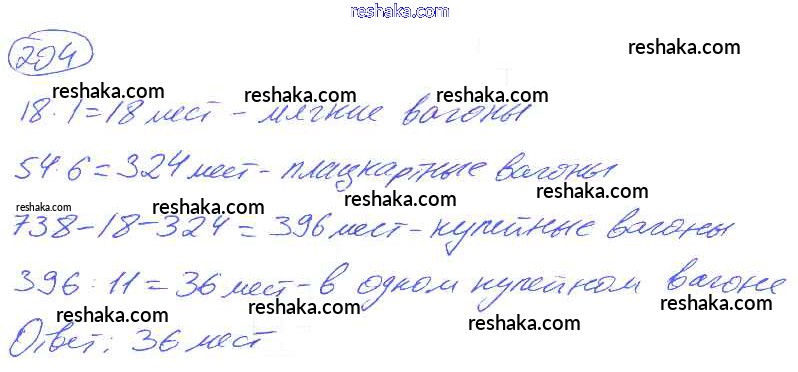 reshaka.com
204
reshaka.com
reshaka.com reshaka.com reshaka.com
18·1=18 мест - мягкие вагоны
reshaka.com reshaka.com
54·6=324 мест - плацкартные вагоны
reshaka.com reshaka.com reshaka.com reshaka.com
738-18-324=396 мест - купейные вагоны
reshaka.com reshaka.com
396:11=36 мест - в одном купейном вагоне
reshaka.com reshaka.com reshaka.com
Ответ: 36 мест
reshaka.com reshaka.com